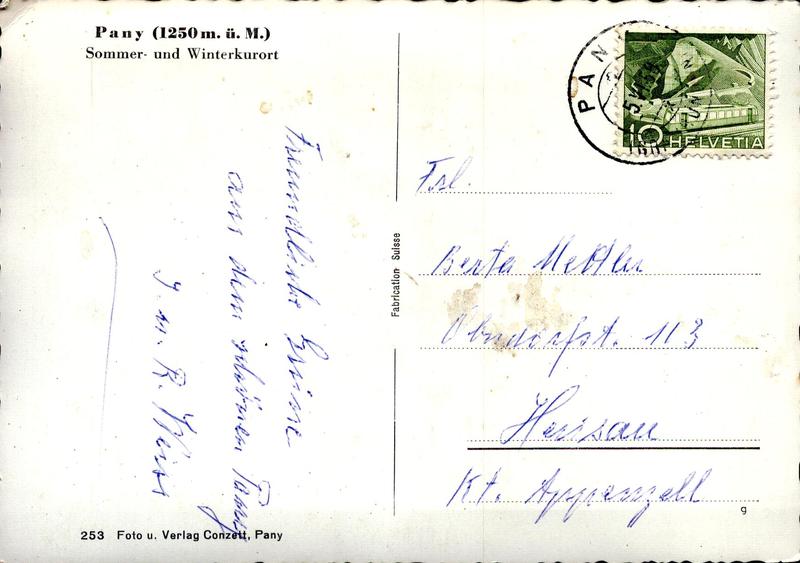 Pany (1250 m. ü. M.)
Sommer- und Winterkurort
Freundliche Grüsse
aus dem schönen Pany
J. u. R. Weiss
253 Foto u. Verlag Conzett, Pany
Fabrication Suisse
PANY
10 HELVETIA
Frl.
Berta Mettler
Obndorfst. 113
Herisau
Kt. Appenzell
g